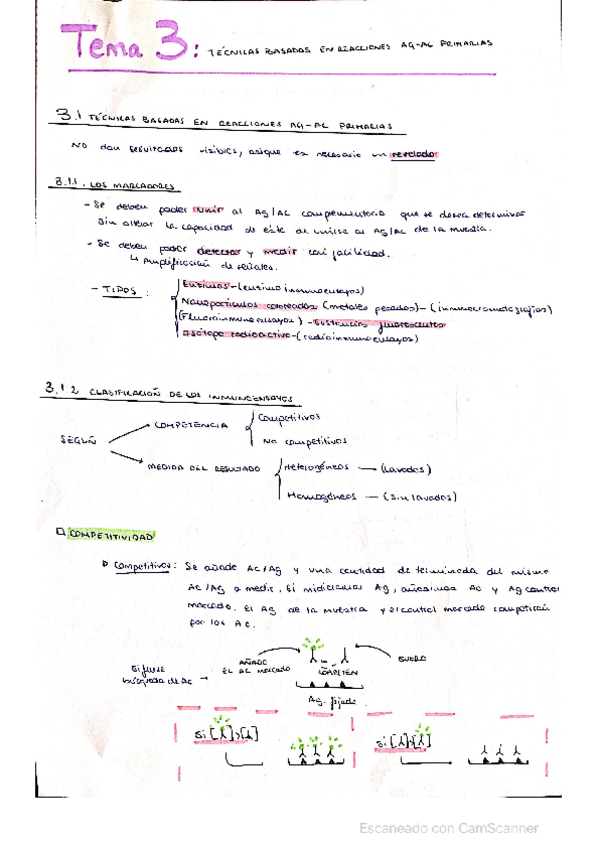 Tema 3: TÉCNICAS BASADAS EN REACCIONES AG-AC PRIMARIAS
3.1 TÉCNICAS BASADAS EN REACCIONES AG-AC PRIMARIAS
No dan resultados visibles, asique es necesario un revelado
3.1.1. LOS MARCADORES
- Se deben poder unir al Ag/Ac complementario que se desea determinar
sin alterar la capacidad de éste al unirse al Ag/Ac de la muestra.
- Se deben poder detectar y medir con facilidad.
↳ Amplificación de señales.
- TIPOS:
Enzimas-(enzimoinmunoensayos)
Nanopartículas coloreadas (metales pesados)-(inmunocromatografías)
(Fluoroinmunoensayos)-Sustancias fluorescentes
Isótopo radioactivo-(radioinmunoensayos)
3.1.2 CLASIFICACIÓN DE LOS INMUNOENSAYOS
SEGÚN
COMPETENCIA
Competitivos
No competitivos
MEDIDA DEL RESULTADO
Heterogéneos — (Lavados)
Homogéneos — (sin lavados)
COMPETITIVIDAD
Competitivos: Se añade Ac/Ag y una cantidad determinada del mismo
Ac/Ag a medir. Si midieramos Ag, añadimos Ac y Ag control
marcado. El Ag de la muestra y el control marcado competirán
por los Ac.
Si fuese
búsqueda de Ac →
AÑADE
EL AC MARCADO
COMPITEN
SUERO
Ag. fijado
Si [ ] > [ ]
Si [ ] < [ ]
Escaneado con CamScanner